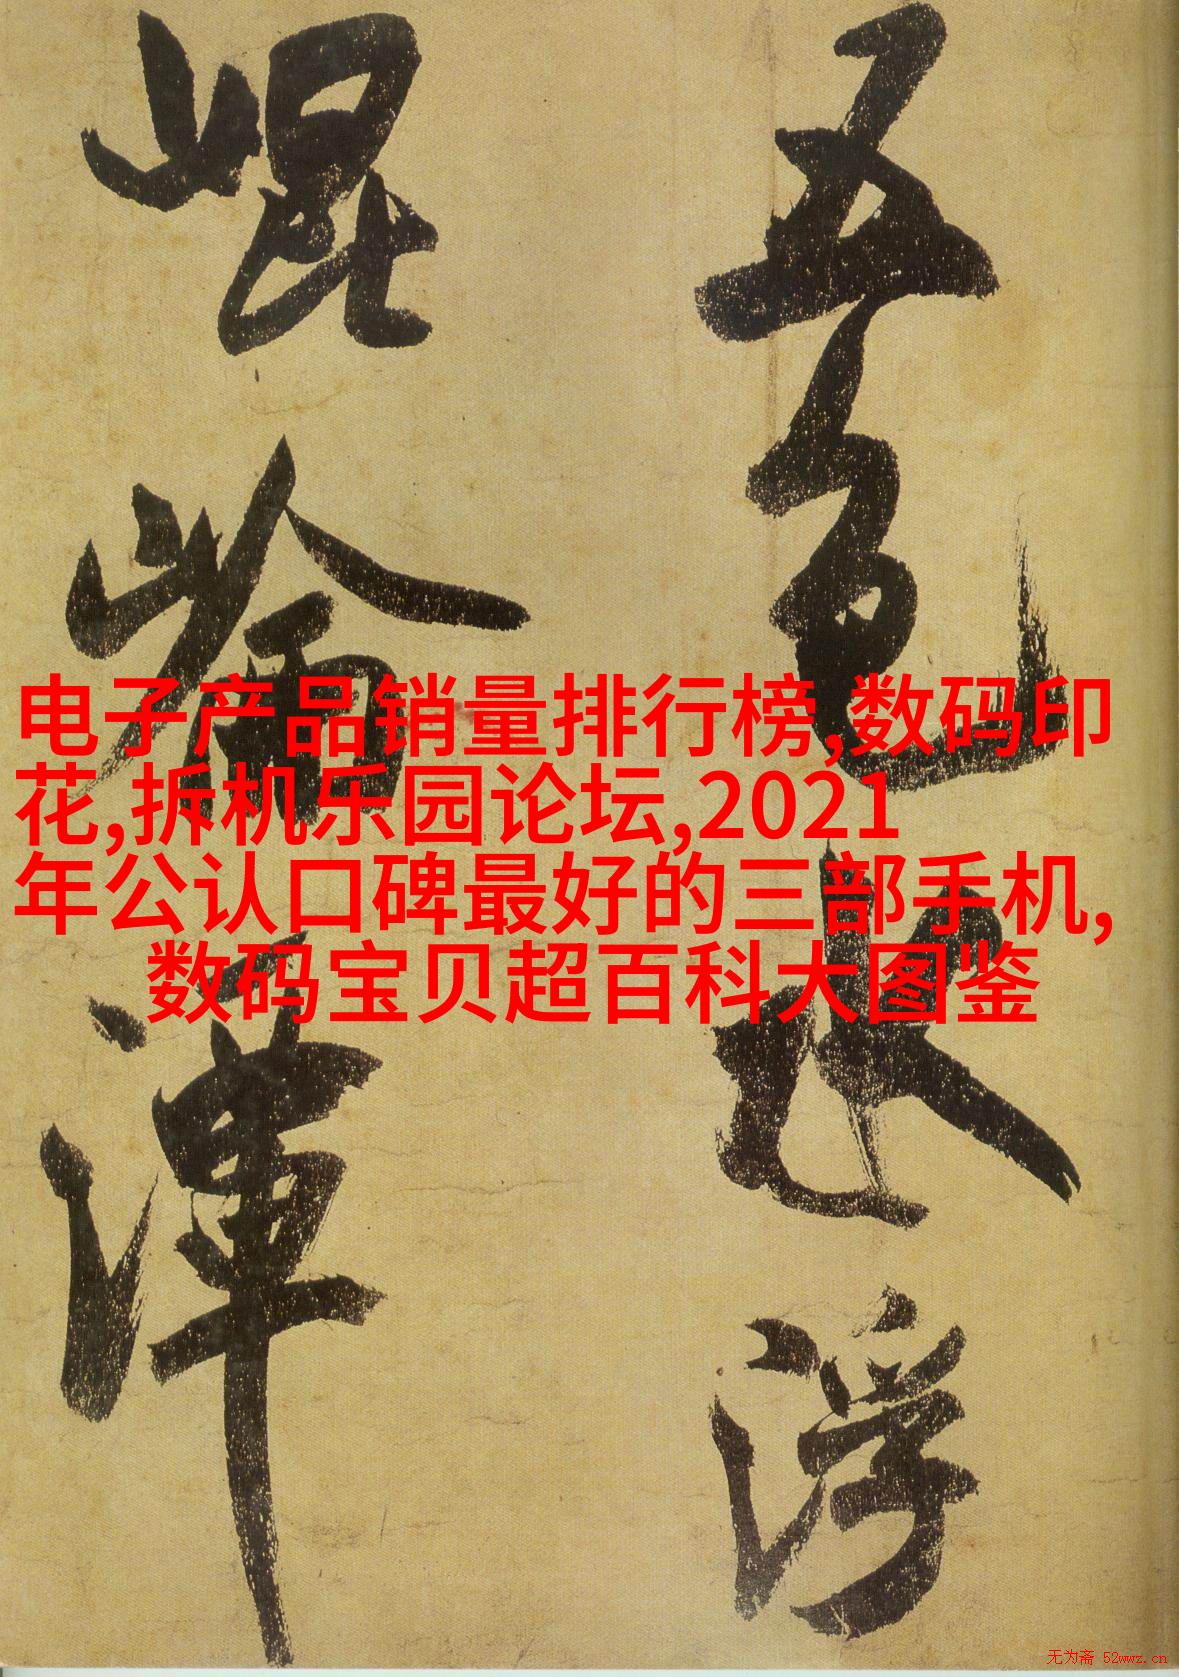 五色水浮
崐崘渾
电子产品销量排行榜,数码印
花,拆机乐园论坛,2021
年公认口碑最好的三部手机,
数码宝贝超百科大图鉴
无为斋 52wwz.cn